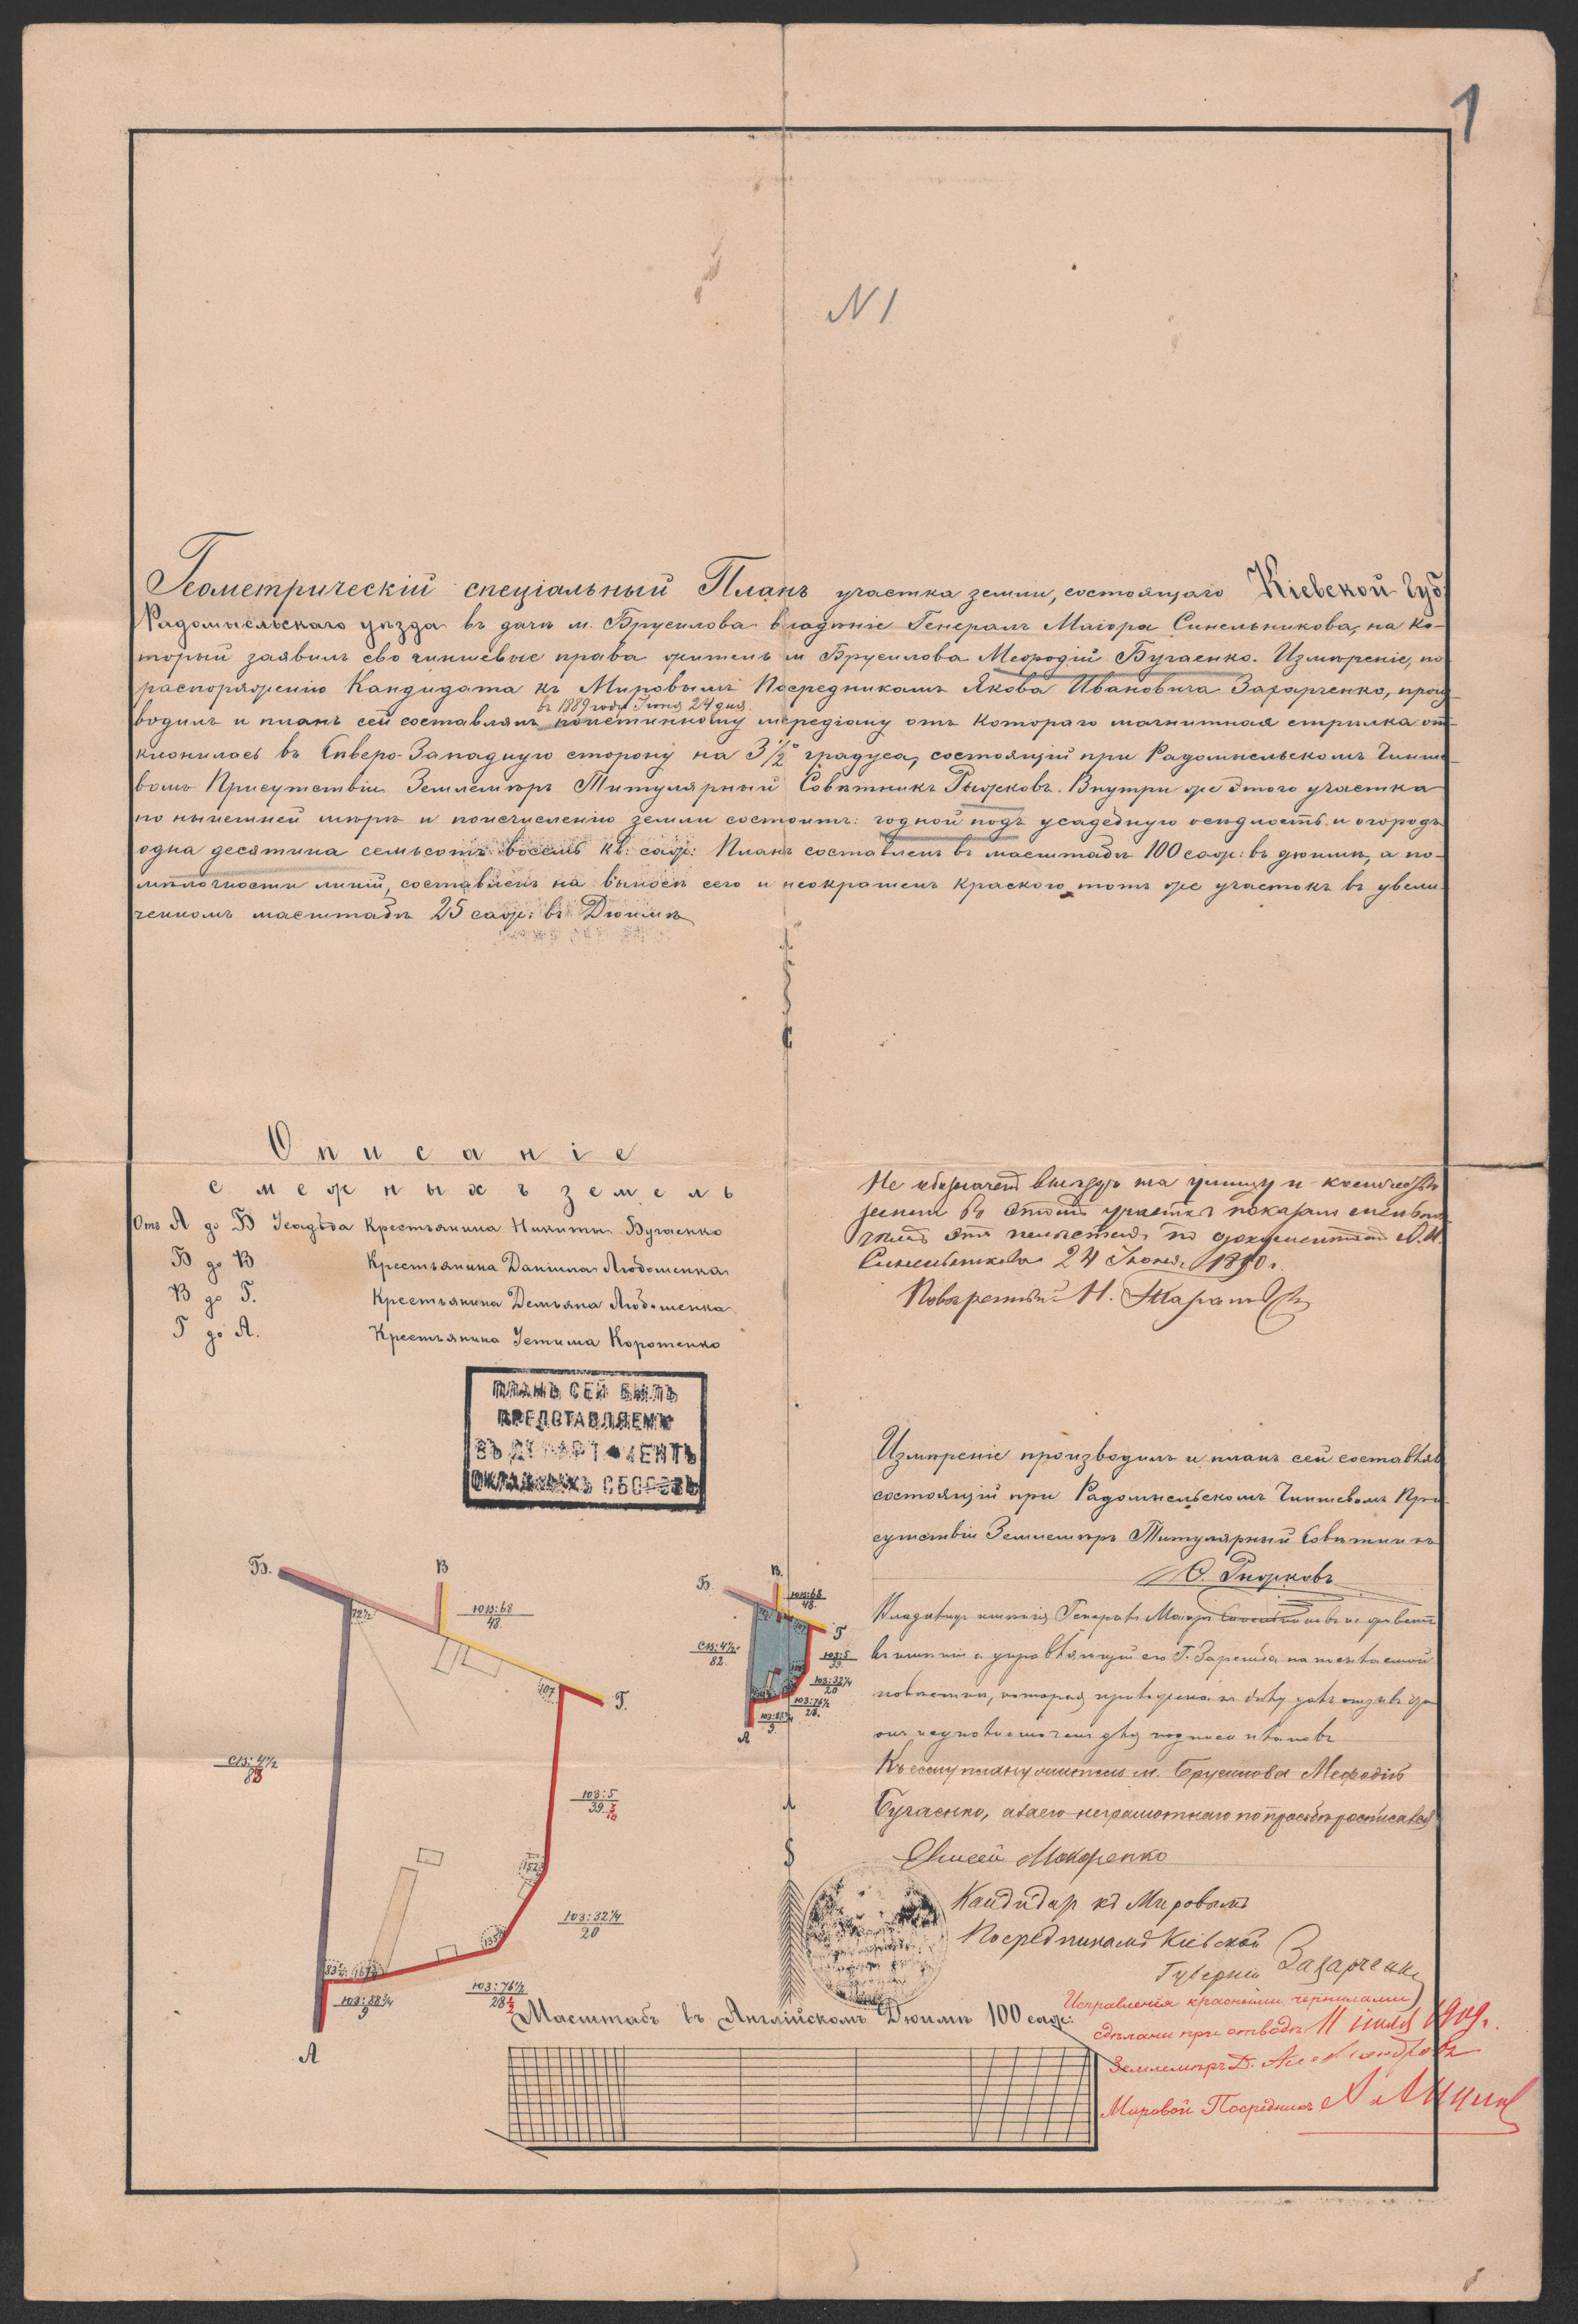 1
N 1
Геометрическій спеціальный Планъ участка земли, состоящаго Кіевской Губ:
Радомысльскаго уѣзда въ дачѣ м. Брусилова владѣніе Генералъ Маіора Синельникова, на ко-
торый заявилъ сво чиншевые права житель м Брусилова Меѳодій Бугаенко. Измѣреніе, по
распоряженію Кандидата къ Мировымъ Посредникамъ Якова Ивановича Захарченко, произ-
въ 1889 году Іюня 24 дня.
водилъ и планъ сей составлялъ поистинному мередіону отъ котораго магнитная стрѣлка от-
клонилась въ Сѣверо-Западную сторону на 3 1/2° градуса, состоящій при Радомысльскомъ Чинше-
вомъ Присутствіи Землемѣръ Титулярный Совѣтникъ Рыжковъ. Внутри же этого участка
по нынешней мѣрѣ и поисчисленію земли состоитъ: годной подъ усадебную осѣдлость и огородъ
одна десятина семьсотъ восемь кв: саж: Планъ составленъ въ масштабѣ 100 саж: въ дюймѣ, а по-
мѣлочности линій, составленъ на выноскѣ сего и неокрашенъ краскою тотъ же участокъ въ увели-
ченномъ масштабѣ 25 саж: въ Дюймѣ
Описаніе
смежныхъ земель
Отъ А до Б Усадьба Крестьянина Никиты Бугаенко
Б до В Крестьянина Даніила Любошенка
В до Г. Крестьянина Демьяна Любошенка
Г до А. Крестьянина Устима Коротенко
Не обозначенъ въѣздъ на улицу и количество
земли въ этомъ участкѣ показано
по документамъ
Синельникова 24 Іюня 1890 г.
Повѣренный Н.
ПЛАНЪ СЕЙ БЫЛЪ
ПРЕДСТАВЛЯЕМЪ
ВЪ ДЕПАРТАМЕНТЪ
ОКЛАДНЫХЪ СБОРОВЪ
Измѣреніе производилъ и планъ сей составлялъ
состоящій при Радомысльскомъ Чиншевомъ При-
сутствіи Землемѣръ Титулярный Совѣтникъ
Рыжковъ
Владѣлецъ имѣнія Генералъ Маіоръ Синельниковъ не живетъ
въ имѣніи а управляющій его Г. Заремба
онъ неуполномоченъ для подписи плановъ
Къ сему плану житель м. Брусилова Меѳодій
Бугаенко, а за его неграмотнаго по просьбѣ росписался
Елисей Макаренко
Кандидатъ къ Мировымъ
Посредникамъ Кіевской
Губерніи Захарченко
Исправленія красными чернилами
сдѣланы при отводѣ 11 іюля 1909 г.
Землемѣръ Д. Александровъ
Мировой Посредникъ
Б. В Г. А
ЮВ:68
48.
72½
107
СВ:4½
83
ЮЗ:5
39 3/10
152
ЮЗ:32¼
20
135¾
ЮЗ:76½
28½
83½ 167¾
ЮЗ:88¾
9
Б. В. Г А
ЮВ:68
48.
СВ:4½
82.
ЮЗ:5
39
ЮЗ:32¼
20
ЮЗ:76½
28.
ЮЗ:88¾
9.
Масштабъ въ Англійскомъ Дюймѣ 100 саж: